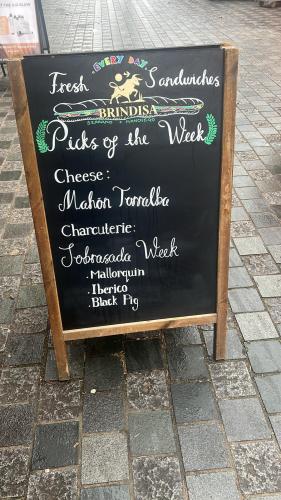 EVERY DAY
Fresh Sandwiches
BRINDISA
Picks of the Week
Cheese:
Mahón Torralba
Charcuterie:
Sobrasada Week
. Mallorquin
. Iberico
. Black Pig